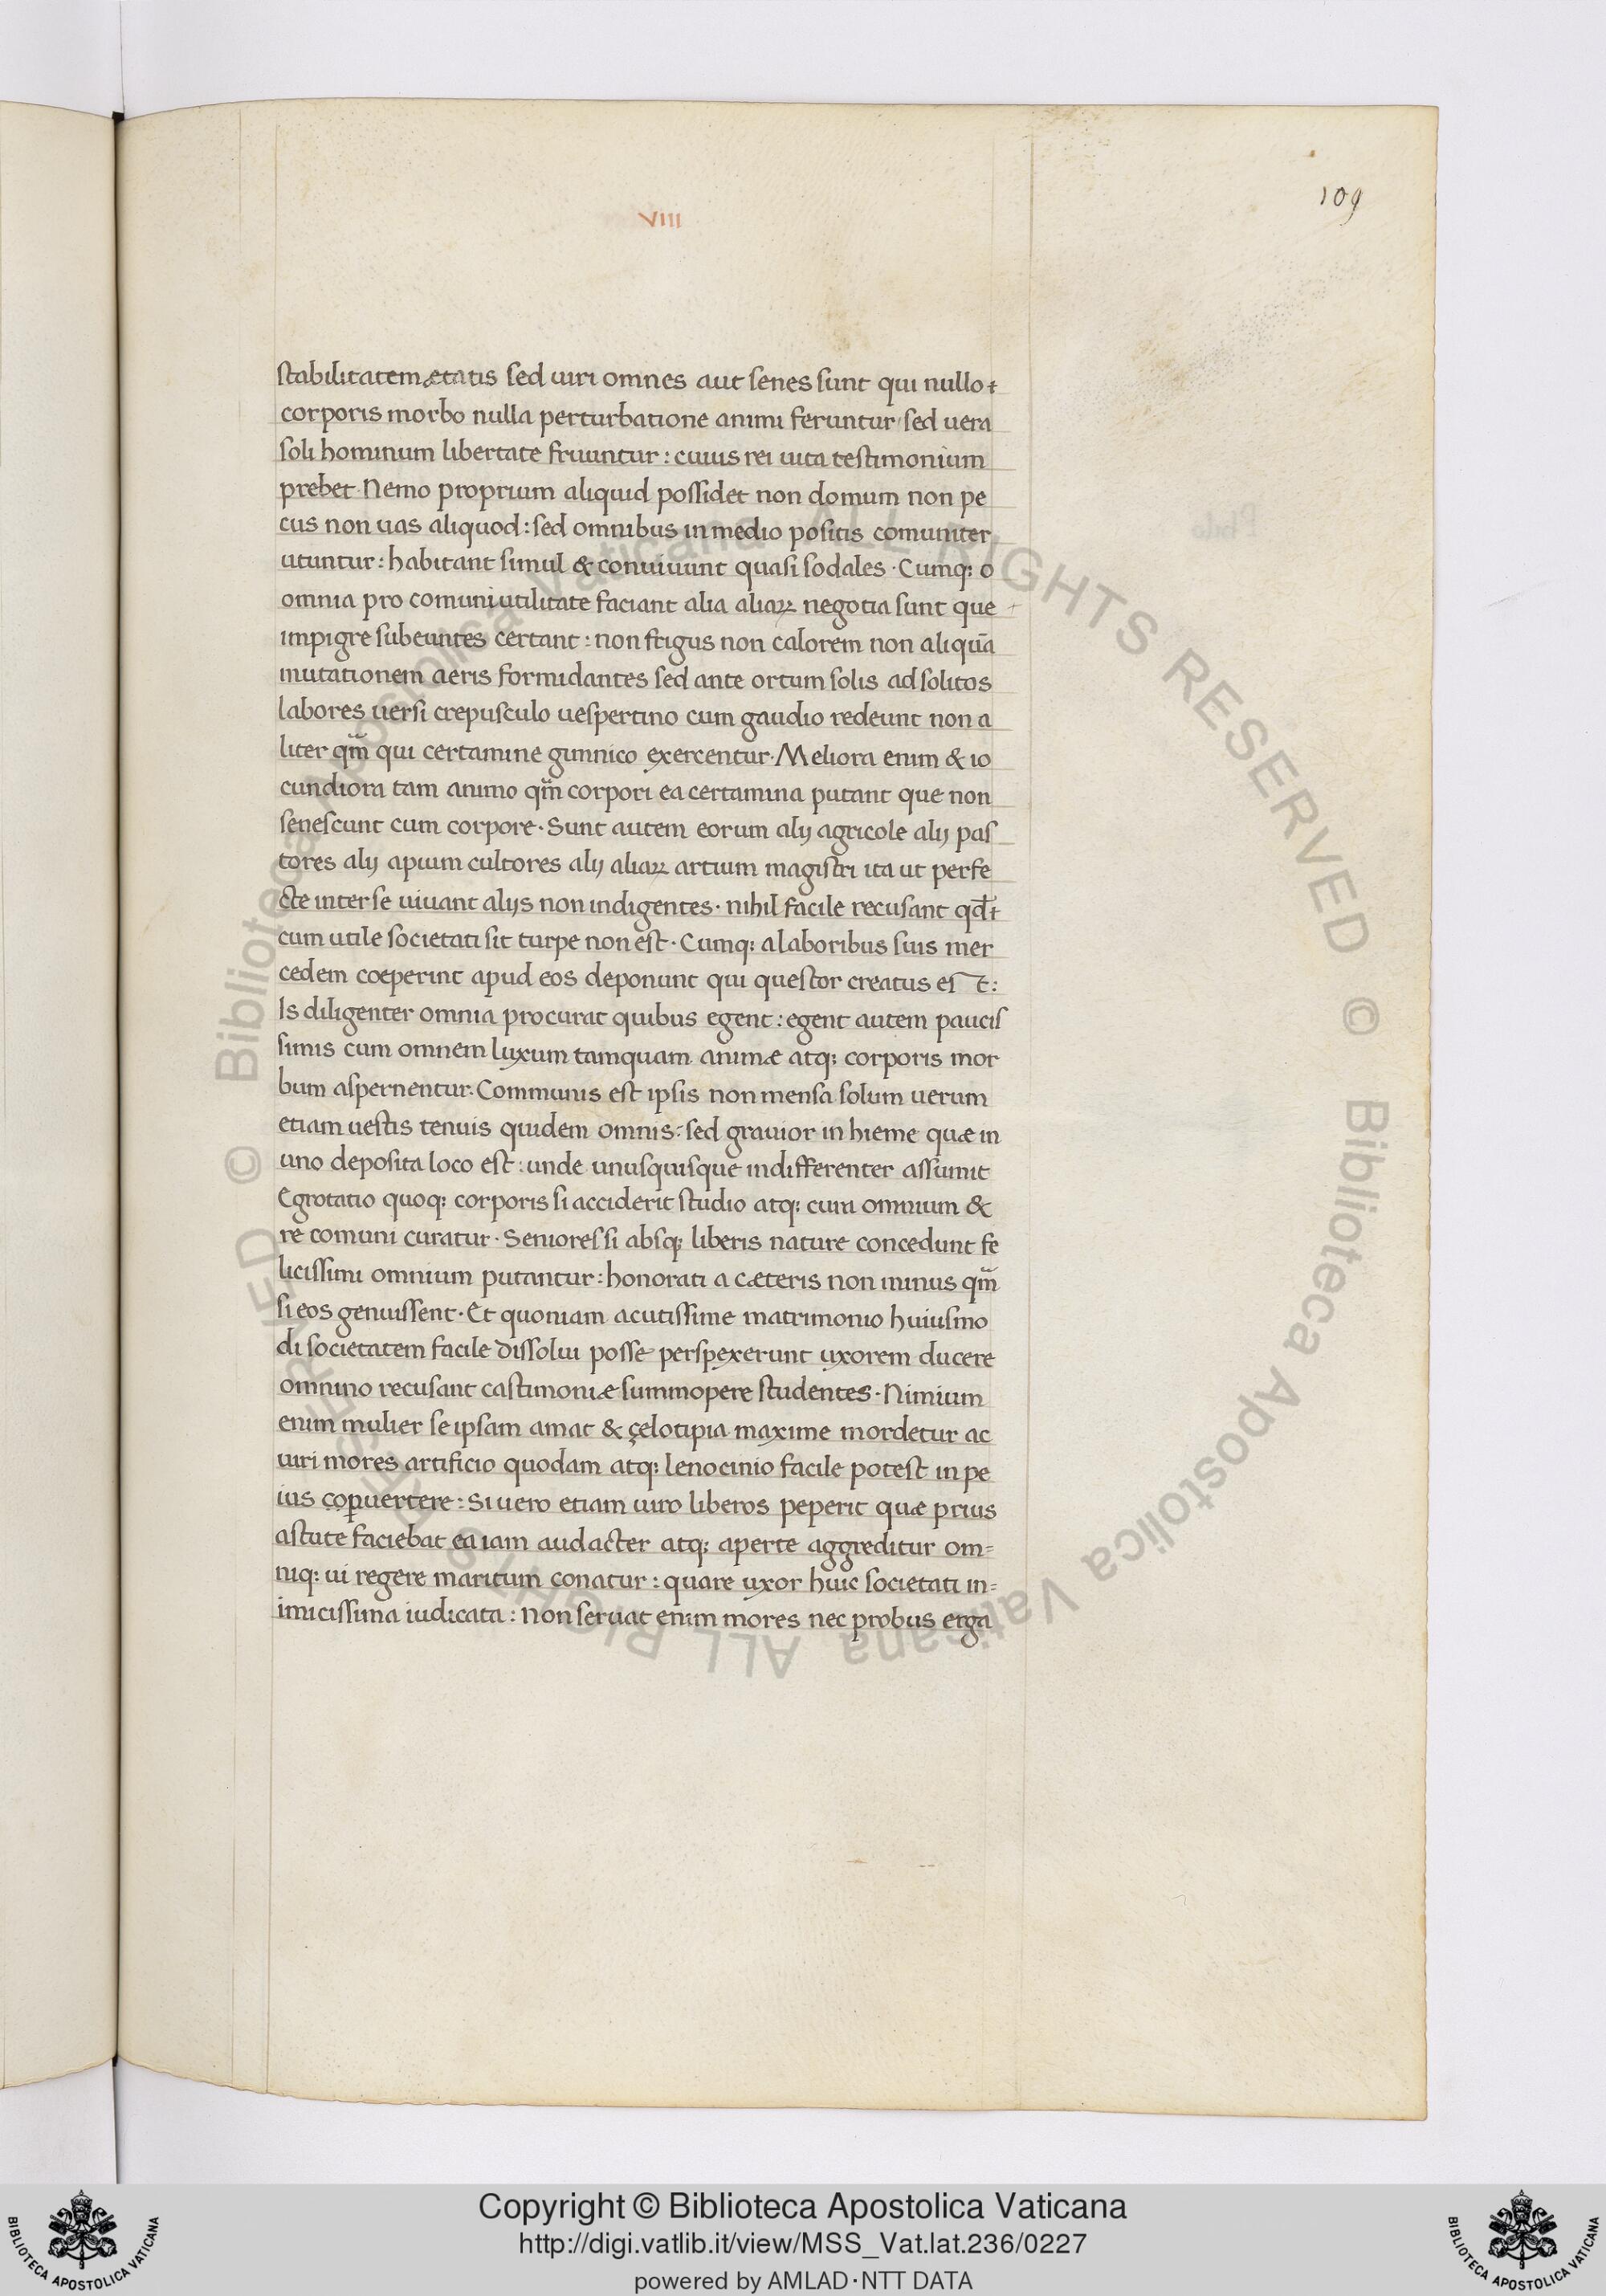 109
VIII
stabilitatem ætatis sed uiri omnes aut senes sunt qui nullo
corporis morbo nulla perturbatione animi feruntur sed uera
soli hominum libertate fruuntur : cuius rei uita testimonium
prebet · Nemo proprium aliquid possidet non domum non pe
cus non uas aliquod : sed omnibus in medio positis comuniter
utuntur : habitant simul & conuiuunt quasi sodales · Cumq; o
omnia pro comuni utilitate faciant alia aliaꝝ negotia sunt que
impigre subeuntes certant : non frigus non calorem non aliquā
mutationem aeris formidantes sed ante ortum solis ad solitos
labores uersi crepusculo uespertino cum gaudio redeunt non a
liter qm̄ qui certamine gimnico exercentur · Meliora enim & io
cundiora tam animo qm̄ corpori ea certamina putant que non
senescunt cum corpore · Sunt autem eorum alij agricole alij pas
tores alij apium cultores alij aliaꝝ artium magistri ita ut perfe
cte inter se uiuant alijs non indigentes · nihil facile recusant qd̄
cum utile societati sit turpe non est · Cumq; a laboribus suis mer
cedem coeperint apud eos deponunt qui questor creatus est :
Is diligenter omnia procurat quibus egent : egent autem paucis
simis cum omnem luxum tamquam animæ atq; corporis mor
bum aspernentur · Communis est ipsis non mensa solum uerum
etiam uestis tenuis quidem omnis : sed grauior in hieme quæ in
uno deposita loco est : unde unusquisque indifferenter assumit
Egrotatio quoq; corporis si acciderit studio atq; cura omnium &
re comuni curatur · Seniores si absq; liberis nature concedunt fe
licissimi omnium putantur : honorati a cæteris non minus qm̄
si eos genuissent · Et quoniam acutissime matrimonio huiusmo
di societatem facile dissolui posse perspexerunt uxorem ducere
omnino recusant castimoniæ summopere studentes · Nimium
enim mulier se ipsam amat & çelotipia maxime mordetur ac
uiri mores artificio quodam atq; lenocinio facile potest in pe
ius uertere : Si uero etiam uiro liberos peperit quæ prius
astute faciebat ea iam audacter atq; aperte aggreditur om=
niq; ui regere maritum conatur : quare uxor huic societati in=
imicissima iudicata : Non seruat enim mores nec probus erga
© Biblioteca Apostolica Vaticana ALL RIGHTS RESERVED
© Biblioteca Apostolica Vaticana ALL RIGHTS RESERVED
Copyright © Biblioteca Apostolica Vaticana
http://digi.vatlib.it/view/MSS_Vat.lat.236/0227
powered by AMLAD·NTT DATA
BIBLIOTECA APOSTOLICA VATICANA
BIBLIOTECA APOSTOLICA VATICANA